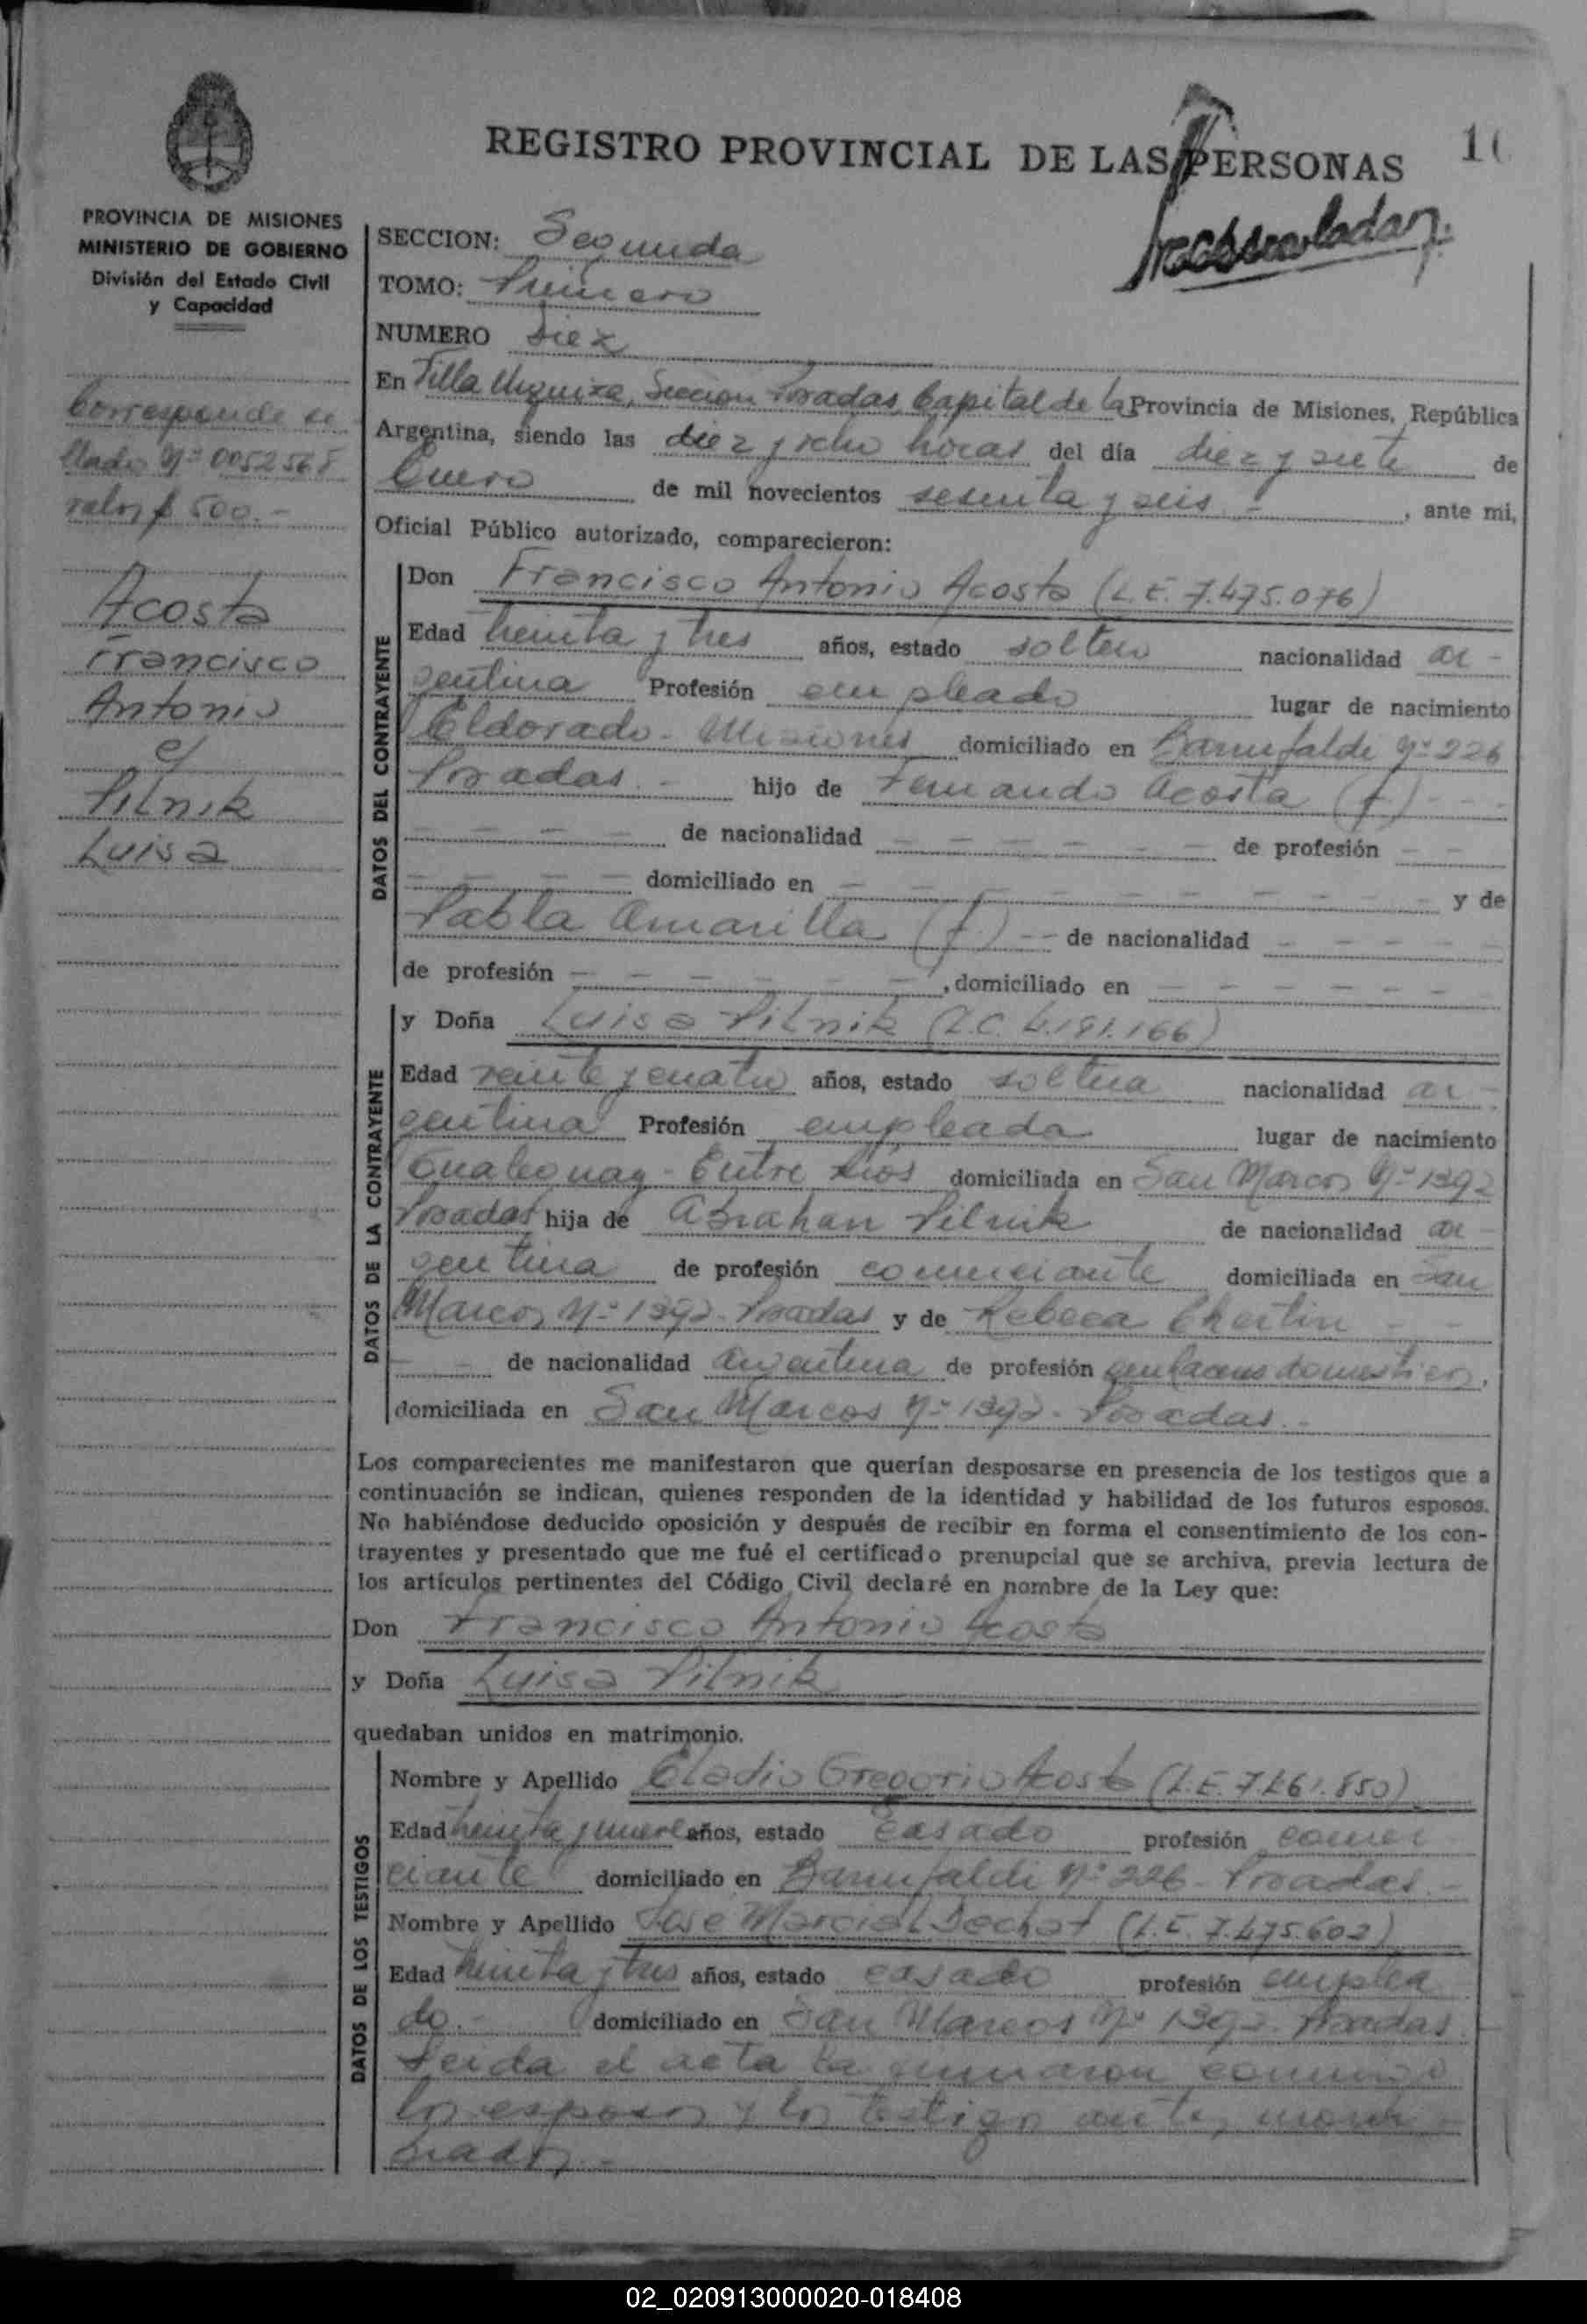 REGISTRO PROVINCIAL DE LAS PERSONAS
PROVINCIA DE MISIONES
MINISTERIO DE GOBIERNO
División del Estado Civil
y Capacidad
SECCION: Segunda
TOMO: Primero
NUMERO Diez
Corresponde se
llado Nº 0052568
valor $ 500.-
Acosta
Francisco
Antonio
c/
Pilnik
Luisa
En Villa Urquiza, Sección Posadas Capital de la Provincia de Misiones, República
Argentina, siendo las diez y ocho horas del día diez y siete de
Enero de mil novecientos sesenta y seis - , ante mi,
Oficial Público autorizado, comparecieron:
DATOS DEL CONTRAYENTE
Don Francisco Antonio Acosta (L.E. 7.475.076)
Edad treinta y tres años, estado soltero nacionalidad ar -
gentina Profesión empleado lugar de nacimiento
Eldorado - Misiones domiciliado en Barrufaldi Nº 226
Posadas - hijo de Fernando Acosta (f) - - -
- - - - de nacionalidad - - - - - - de profesión - -
- - - - domiciliado en - - - - - - - - y de
Pabla Amarilla (f) - - de nacionalidad - - - - -
de profesión - - - - - - , domiciliado en - - - - - -
DATOS DE LA CONTRAYENTE
y Doña Luisa Pilnik (L.C. 4.191.166)
Edad veinte y cuatro años, estado soltera nacionalidad ar -
gentina Profesión empleada lugar de nacimiento
Gualeguay - Entre Rios domiciliada en San Marcos Nº 1392
Posadas hija de Abrahan Pilnik de nacionalidad ar -
gentina de profesión comerciante domiciliada en San
Marcos Nº 1392 - Posadas y de Rebeca - -
- - de nacionalidad argentina de profesión quehaceres domesticos,
domiciliada en San Marcos Nº 1392 - Posadas. -
Los comparecientes me manifestaron que querían desposarse en presencia de los testigos que a
continuación se indican, quienes responden de la identidad y habilidad de los futuros esposos.
No habiéndose deducido oposición y después de recibir en forma el consentimiento de los con-
trayentes y presentado que me fué el certificado prenupcial que se archiva, previa lectura de
los artículos pertinentes del Código Civil declaré en nombre de la Ley que:
Don Francisco Antonio Acosta
y Doña Luisa Pilnik
quedaban unidos en matrimonio.
DATOS DE LOS TESTIGOS
Nombre y Apellido Eladio Gregorio Acosta (L.E. 7.461.850)
Edad treinta y nueve años, estado casado profesión comer
ciante domiciliado en Barrufaldi Nº 226 - Posadas. -
Nombre y Apellido Jose Marcial Dechat (L.E. 7.475.602)
Edad treinta y tres años, estado casado profesión emplea
do. - domiciliado en San Marcos Nº 1392 - Posadas
Leida el acta la firmaron conmigo
los esposos y los testigos antes mencio
nados. -
02_020913000020-018408